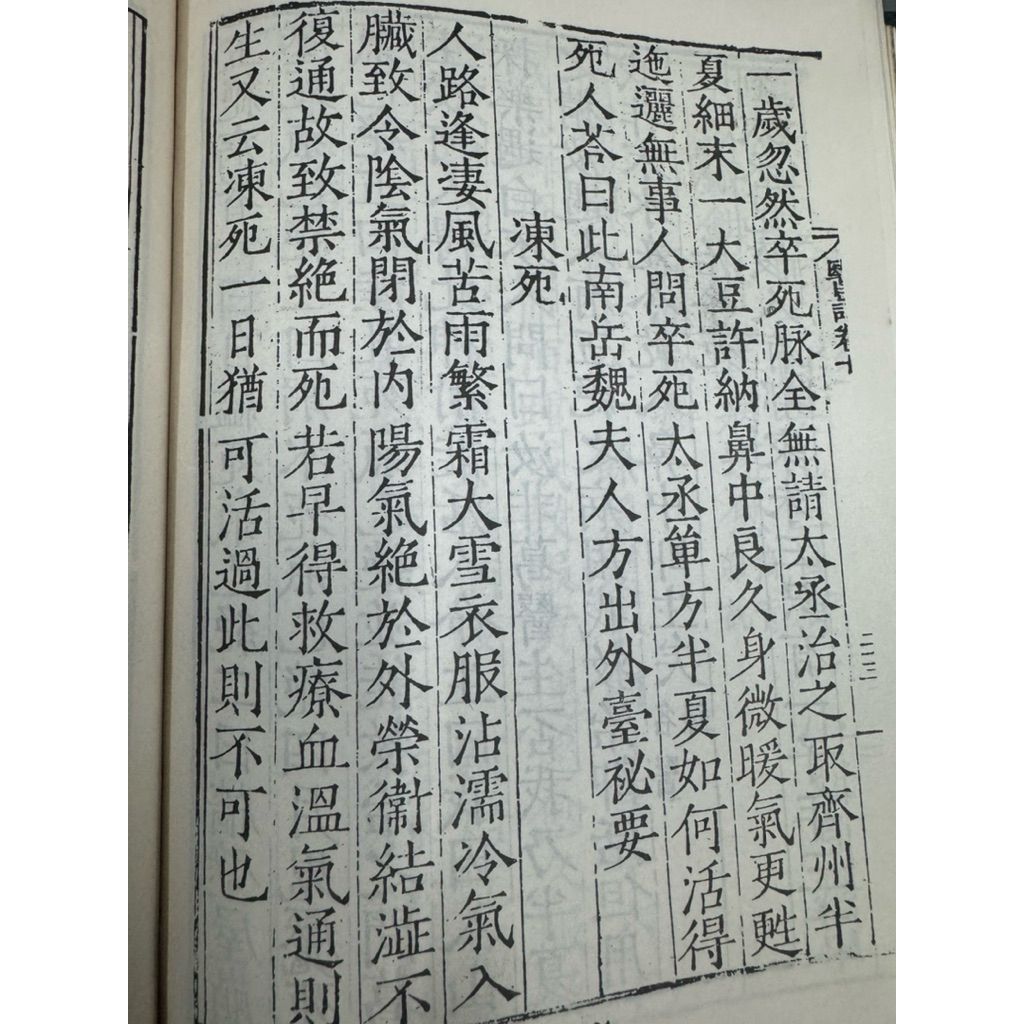 一歲忽然卒死脉全無請太丞治之取齊州半
夏細末一大豆許納鼻中良久身微暖氣更甦
迤邐無事人問卒死太丞單方半夏如何活得
死人荅曰此南岳魏夫人方出外臺祕要
凍死
人路逢凄風苦雨繁霜大雪衣服沾濡冷氣入
臟致令陰氣閉於內陽氣絕於外榮衞結澁不
復通故致禁絕而死若早得救療血溫氣通則
生又云凍死一日猶可活過此則不可也
醫說卷十
二三